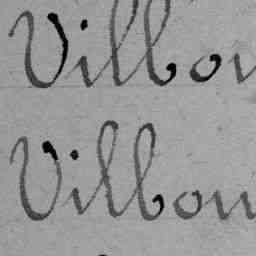 Vilbou
Vilbou